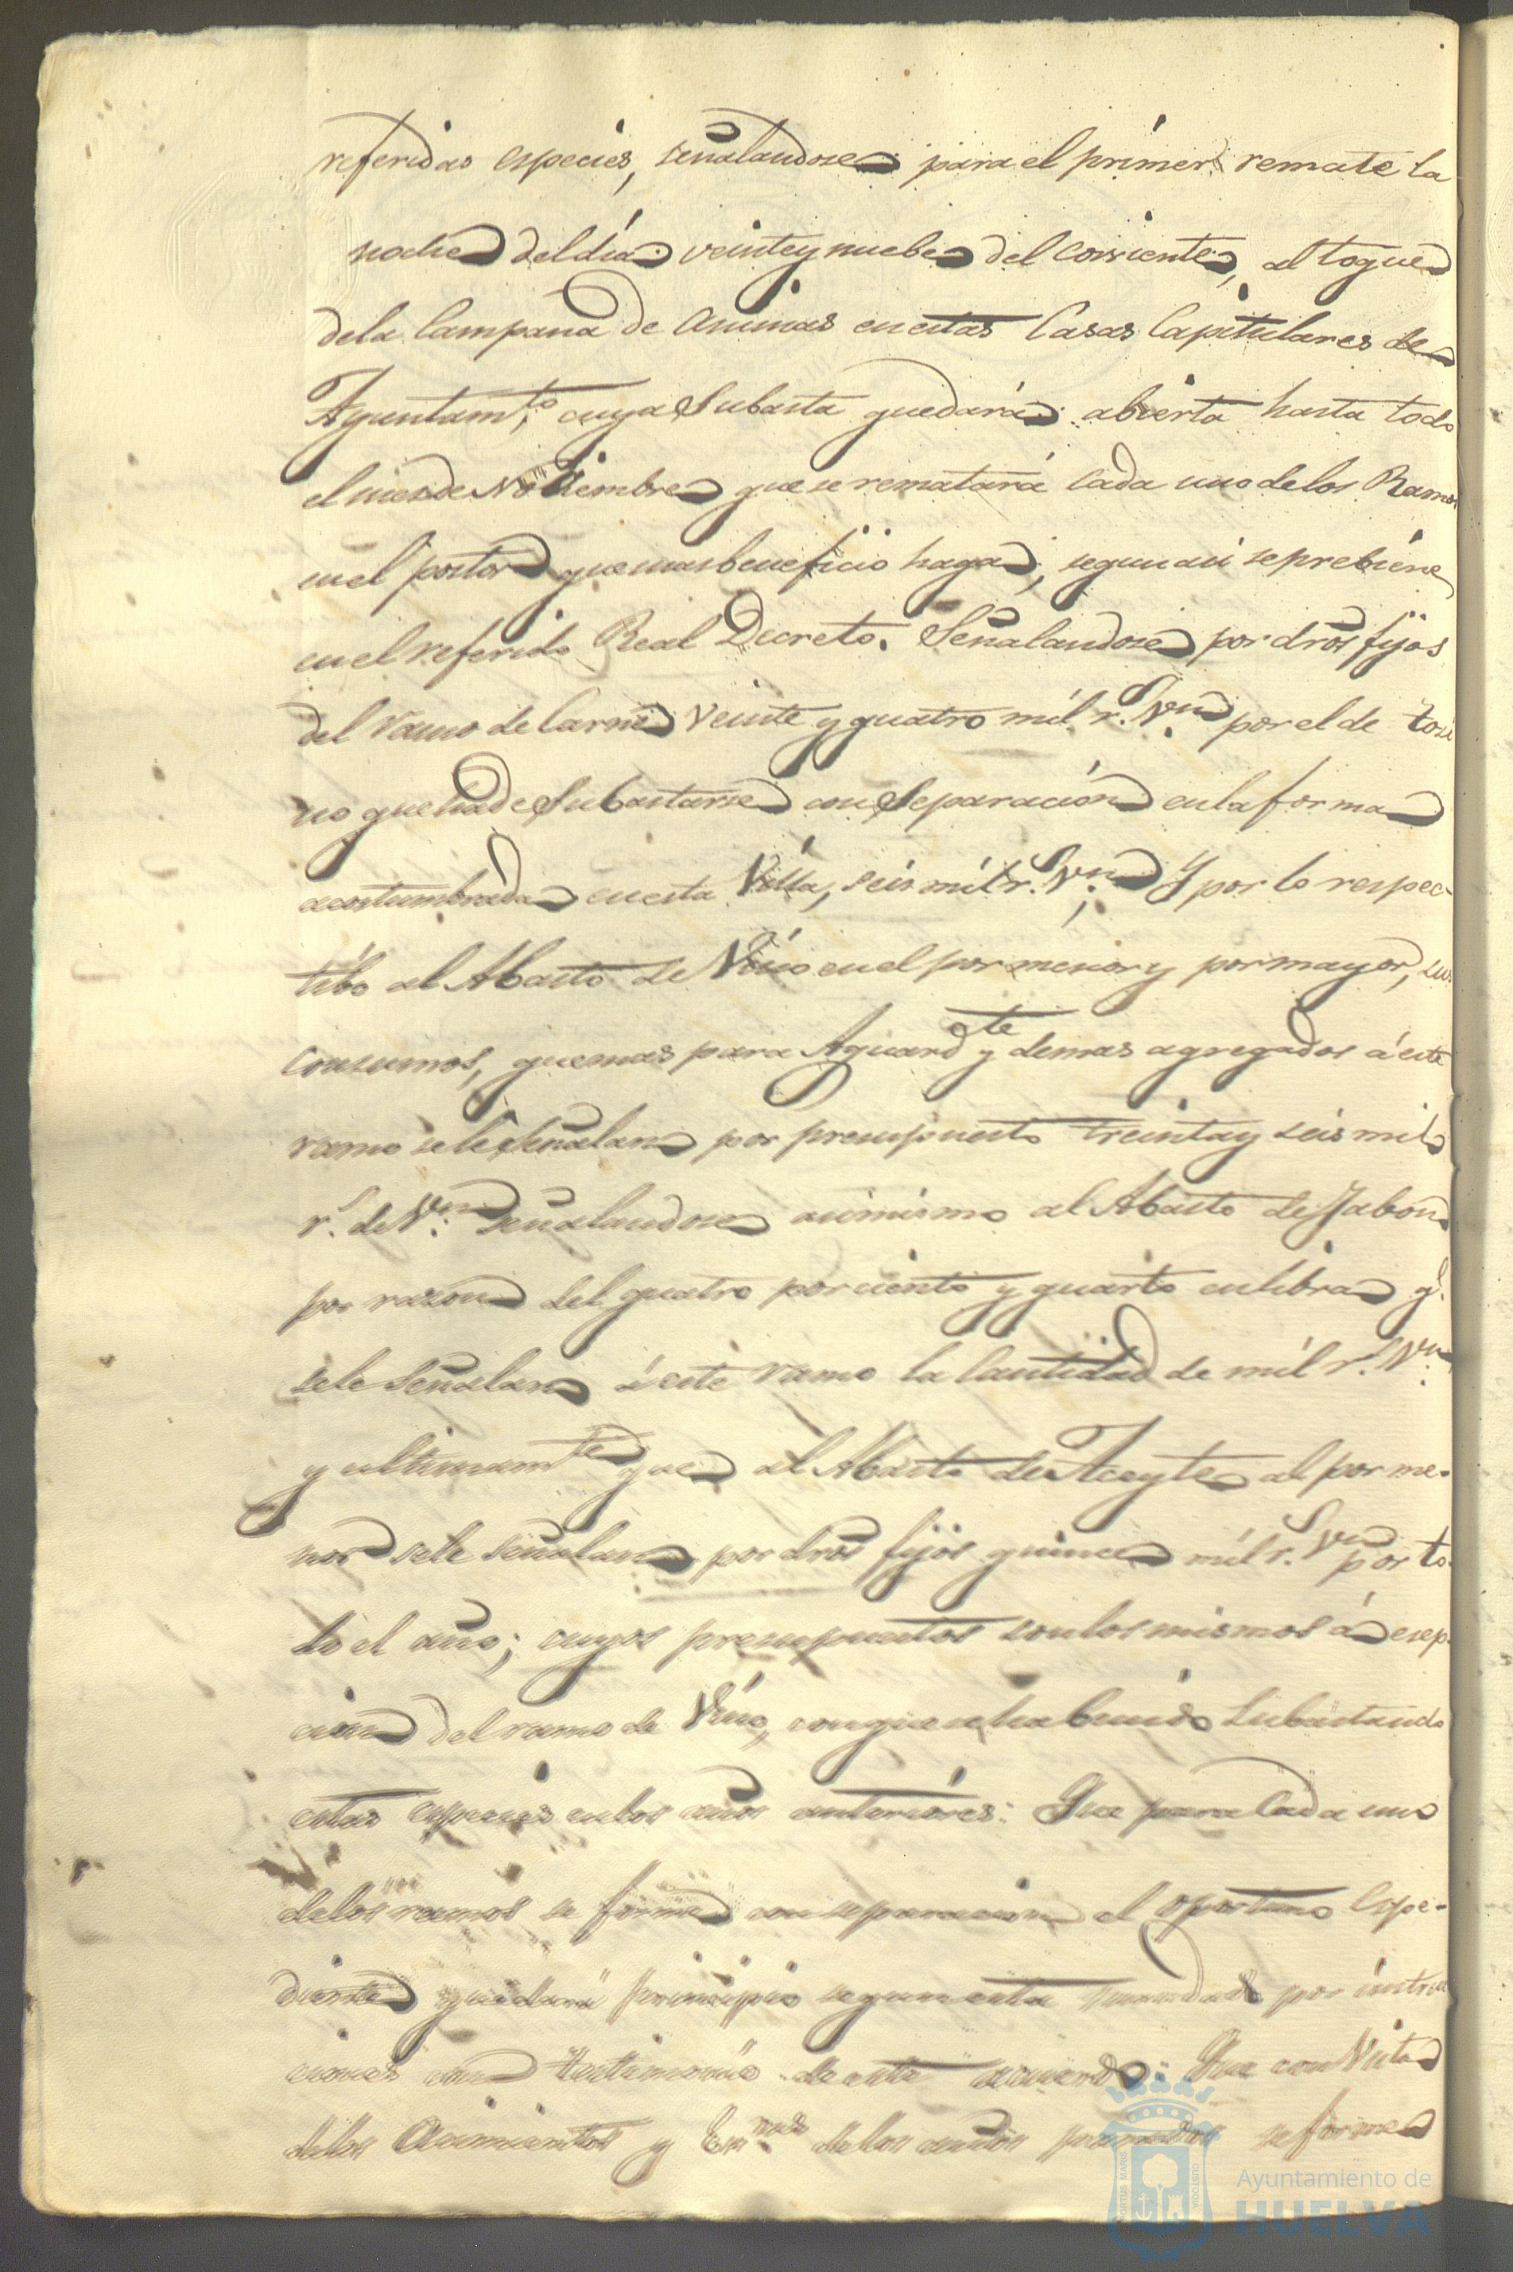 referidas especies, señalandose para el primer remate la
noche del dia veinte y nuebe del corriente, al toque
de la Campana de Animas en estas Casas Capitulares de
Ayuntam.to, cuya Subasta quedará abierta hasta todo
el mes de Noviembre que se rematará cada uno de los Ramos
en el postor que mas beneficio haga, segun asi se prebiene
en el referido Real Decreto. Señalandose por dros fijos
del ramo de Carne veinte y quatro mil r.s V.n por el de tosi
no que ha de Subastarse con Separación en la forma
acostumbrada en esta Villa, seis mil r.s V.n; Y por lo respec-
tibo al Abasto de Vino en el por menor y por mayor, sus
consumos, quemas para Aguard.te y demas agregados á este
ramo se le Señalan por presupuesto treinta y seis mil
r.s de V.n señalandose asimismo al Abasto de Jabon
por razon del quatro por ciento y quarto en libra q.e
se le Señalan á este ramo la Cantidad de mil r.s V.n
y ultimam.te que al Abasto de Aceyte al por me-
nor se le señalan por dros fijos quince mil r.s V.n por to-
do el año; cuyos presupuestos son los mismos á esep-
cion del ramo de Vino, con que se ha benido Subastando
estas especies en los años anteriores: Que para Cada uno
de los ramos se forme con separacion el oportuno Espe-
diente que dará principio segun esta mandado por instruc
ciones con testimonio de este acuerdo: Que con Vista
de los Asimientos y de los autos se forme
Ayuntamiento de
HUELVA
PORTUS MARIS
CUSTODIA